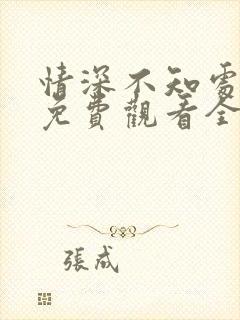 情深不知處
免費觀看全
張成